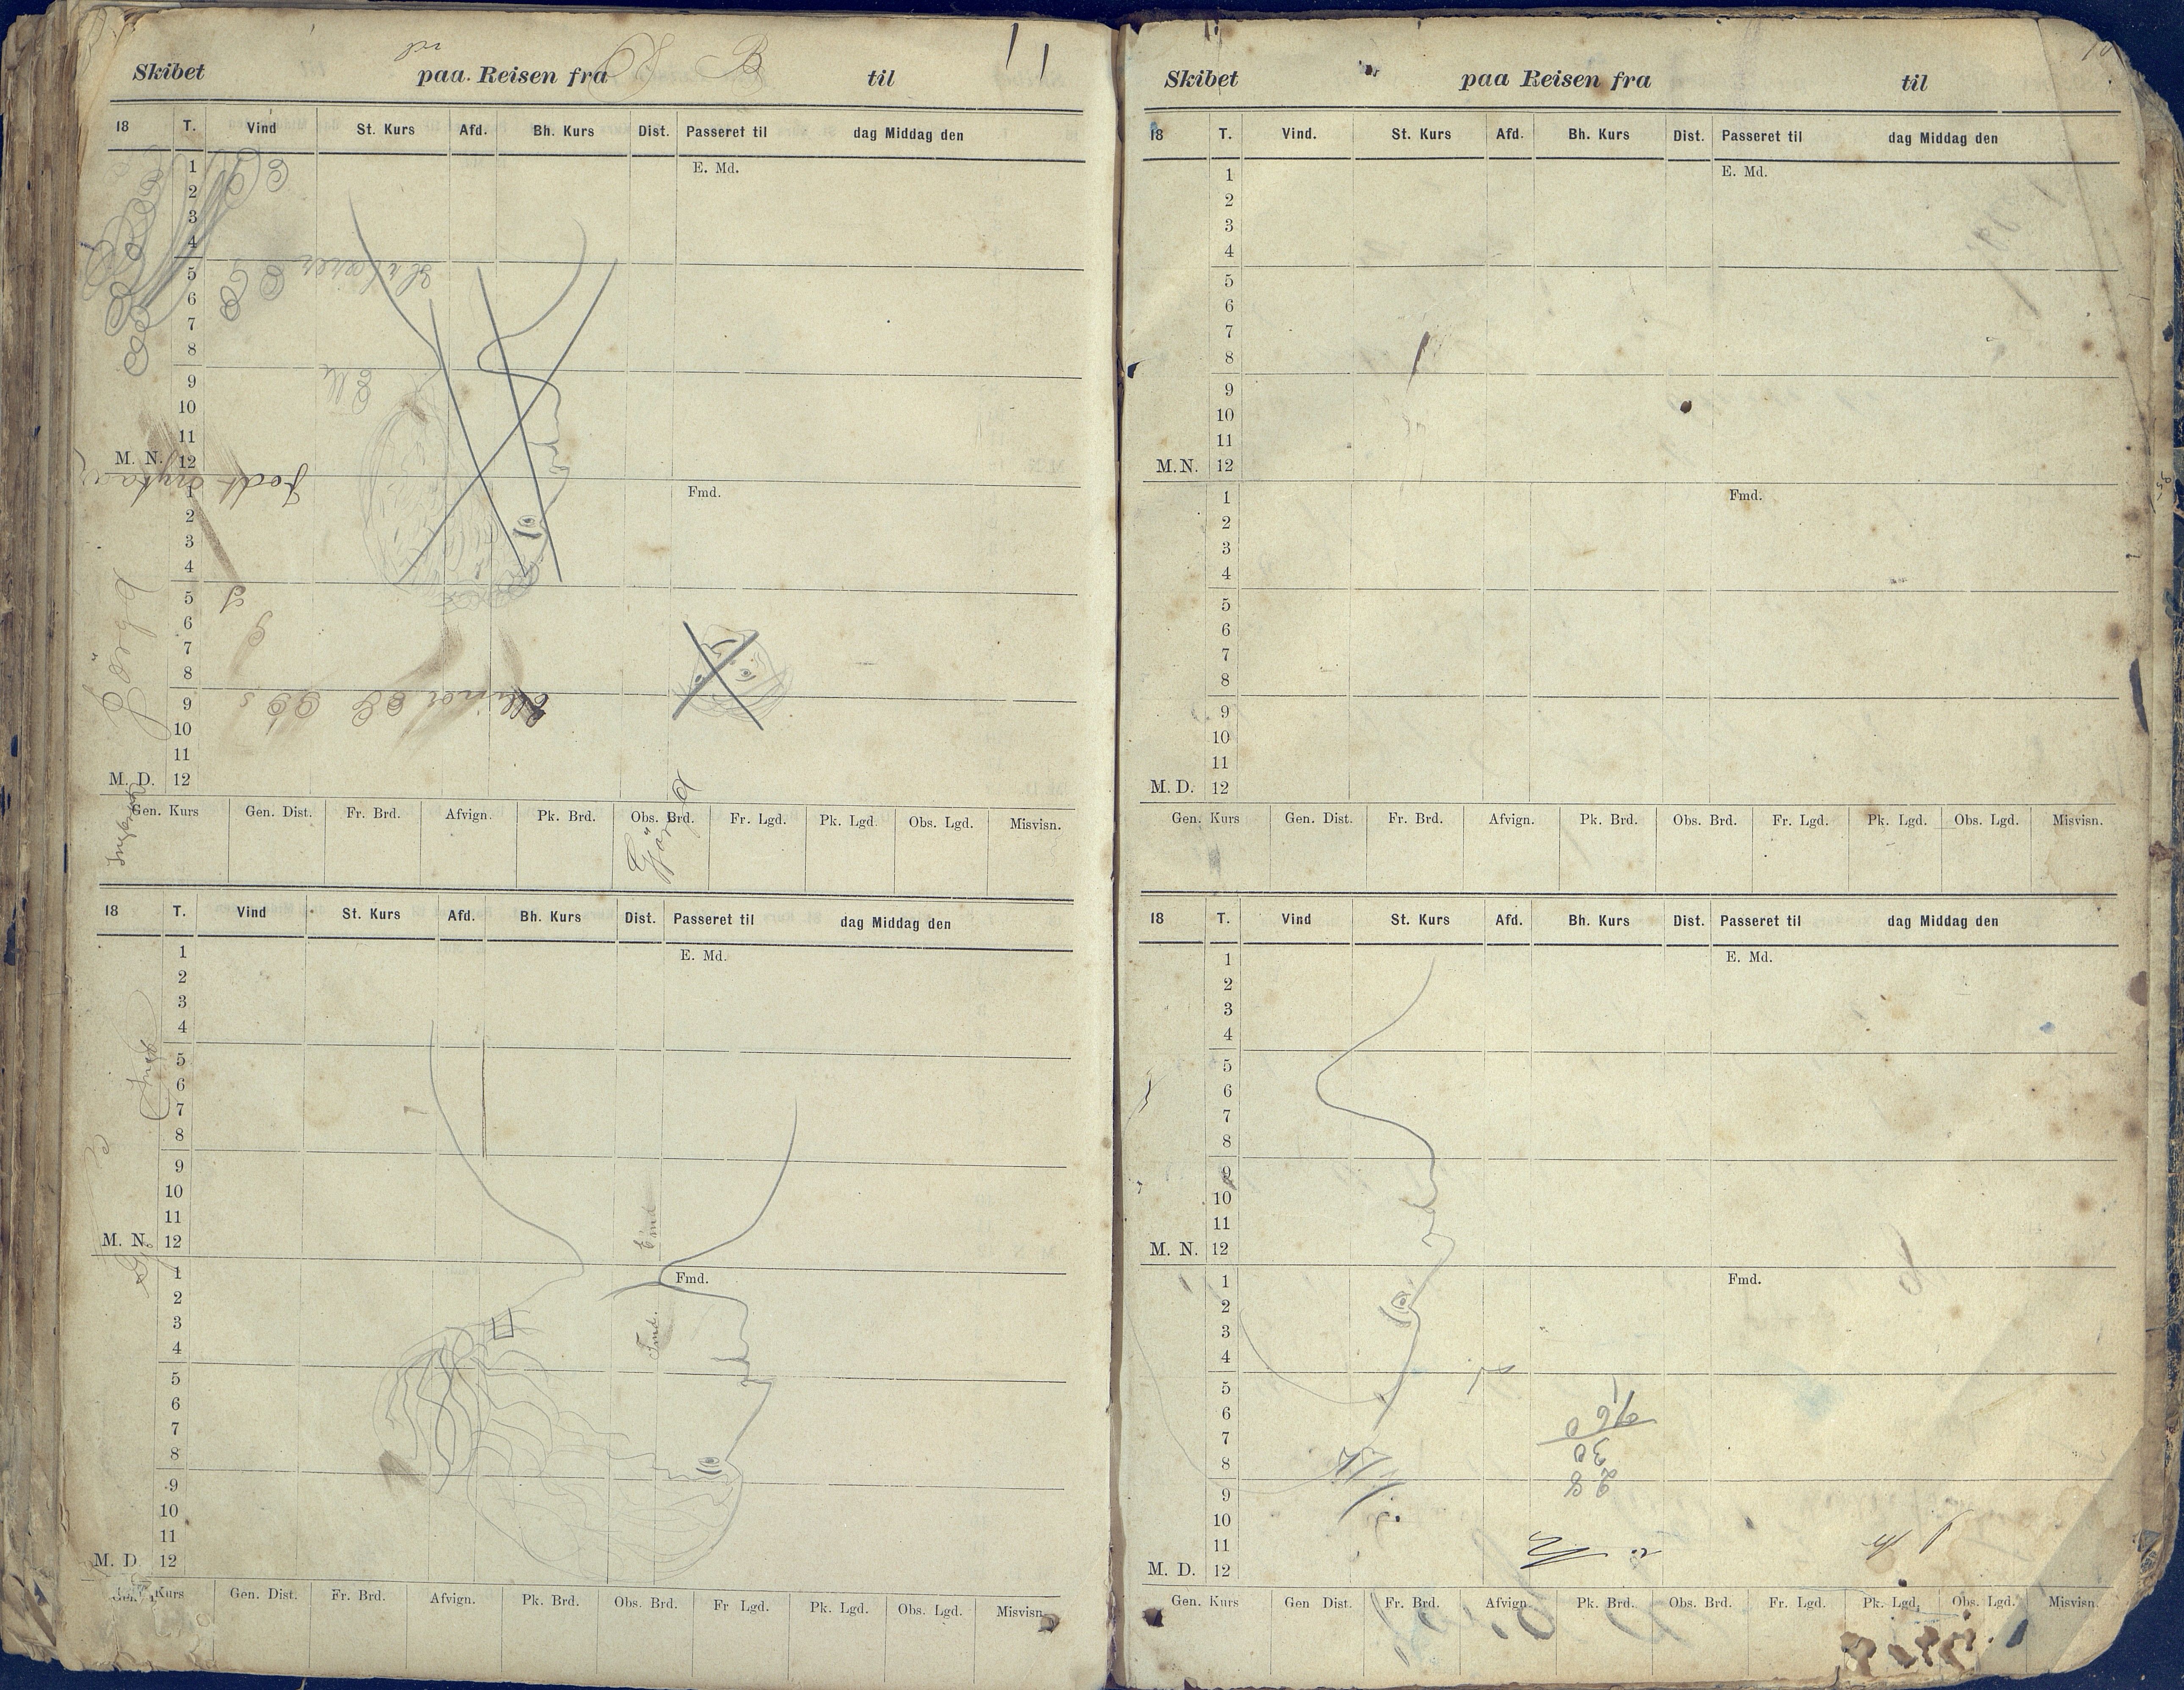 Skibet paa Reisen fra til
18 T. Vind St. Kurs Afd. Bh. Kurs Dist. Passeret til dag Middag den
1 E. Md.
2
3
4
5
6
7
8
9
10
11
M. N. 12
1 Fmd.
2
3
4
5
6
7
8
9
10
11
M. D. 12
Gen. Kurs Gen. Dist. Fr. Brd. Afvign. Pk. Brd. Obs. Brd. Fr. Lgd. Pk. Lgd. Obs. Lgd. Misvisn.
18 T. Vind St. Kurs Afd. Bh. Kurs Dist. Passeret til dag Middag den
1 E. Md.
2
3
4
5
6
7
8
9
10
11
M. N. 12
1 Fmd.
2
3
4
5
6
7
8
9
10
11
M. D 12
Gen. Kurs Gen. Dist. Fr. Brd. Afvign. Pk. Brd. Obs. Brd. Fr Lgd. Pk. Lgd. Obs. Lgd. Misvisn.
Fmd.
Skibet paa Reisen fra til
18 T. Vind. St. Kurs Afd. Bh. Kurs Dist. Passeret til dag Middag den
1 E. Md.
2
3
4
5
6
7
8
9
10
11
M. N. 12
1 Fmd.
2
3
4
5
6
7
8
9
10
11
M. D. 12
Gen. Kurs Gen. Dist. Fr. Brd. Afvign. Pk. Brd. Obs. Brd. Fr. Lgd. Pk. Lgd. Obs. Lgd. Misvisn.
18 T. Vind St. Kurs Afd. Bh. Kurs Dist. Passeret til dag Middag den
1 E. Md.
2
3
4
5
6
7
8
9
10
11
M. N. 12
1 Fmd.
2
3
4
5
6
7
8
9
10
11
M. D. 12
Gen. Kurs Gen Dist. Fr. Brd. Afvign. Pk. Brd. Obs. Brd. Fr. Lgd. Pk. Lgd. Obs. Lgd. Misvisn.
28
30